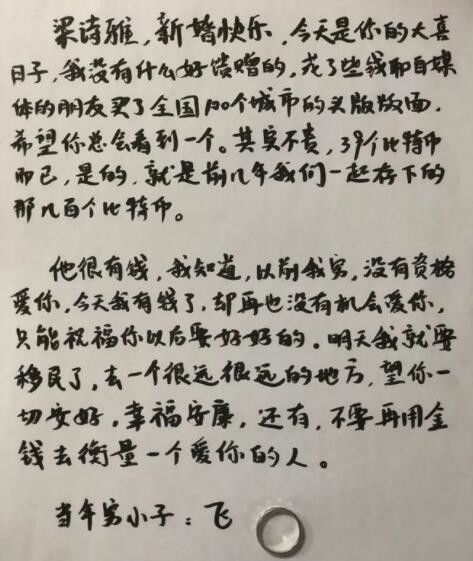 梁诗雅，新婚快乐，今天是你的大喜
日子，我没有什么好馈赠的，花了些钱和自媒
体的朋友买了全国100个城市的头版版面，
希望你总会看到一个。其实不贵，39个比特币
而已，是的，就是前几年我们一起存下的
那几百个比特币。
他很有钱，我知道，以前我穷，没有资格
爱你，今天我有钱了，却再也没有机会爱你，
只能祝福你以后要好好的。明天我就要
移民了，去一个很远很远的地方，望你一
切安好，幸福安康，还有，不要再用金
钱去衡量一个爱你的人。
当年穷小子：飞